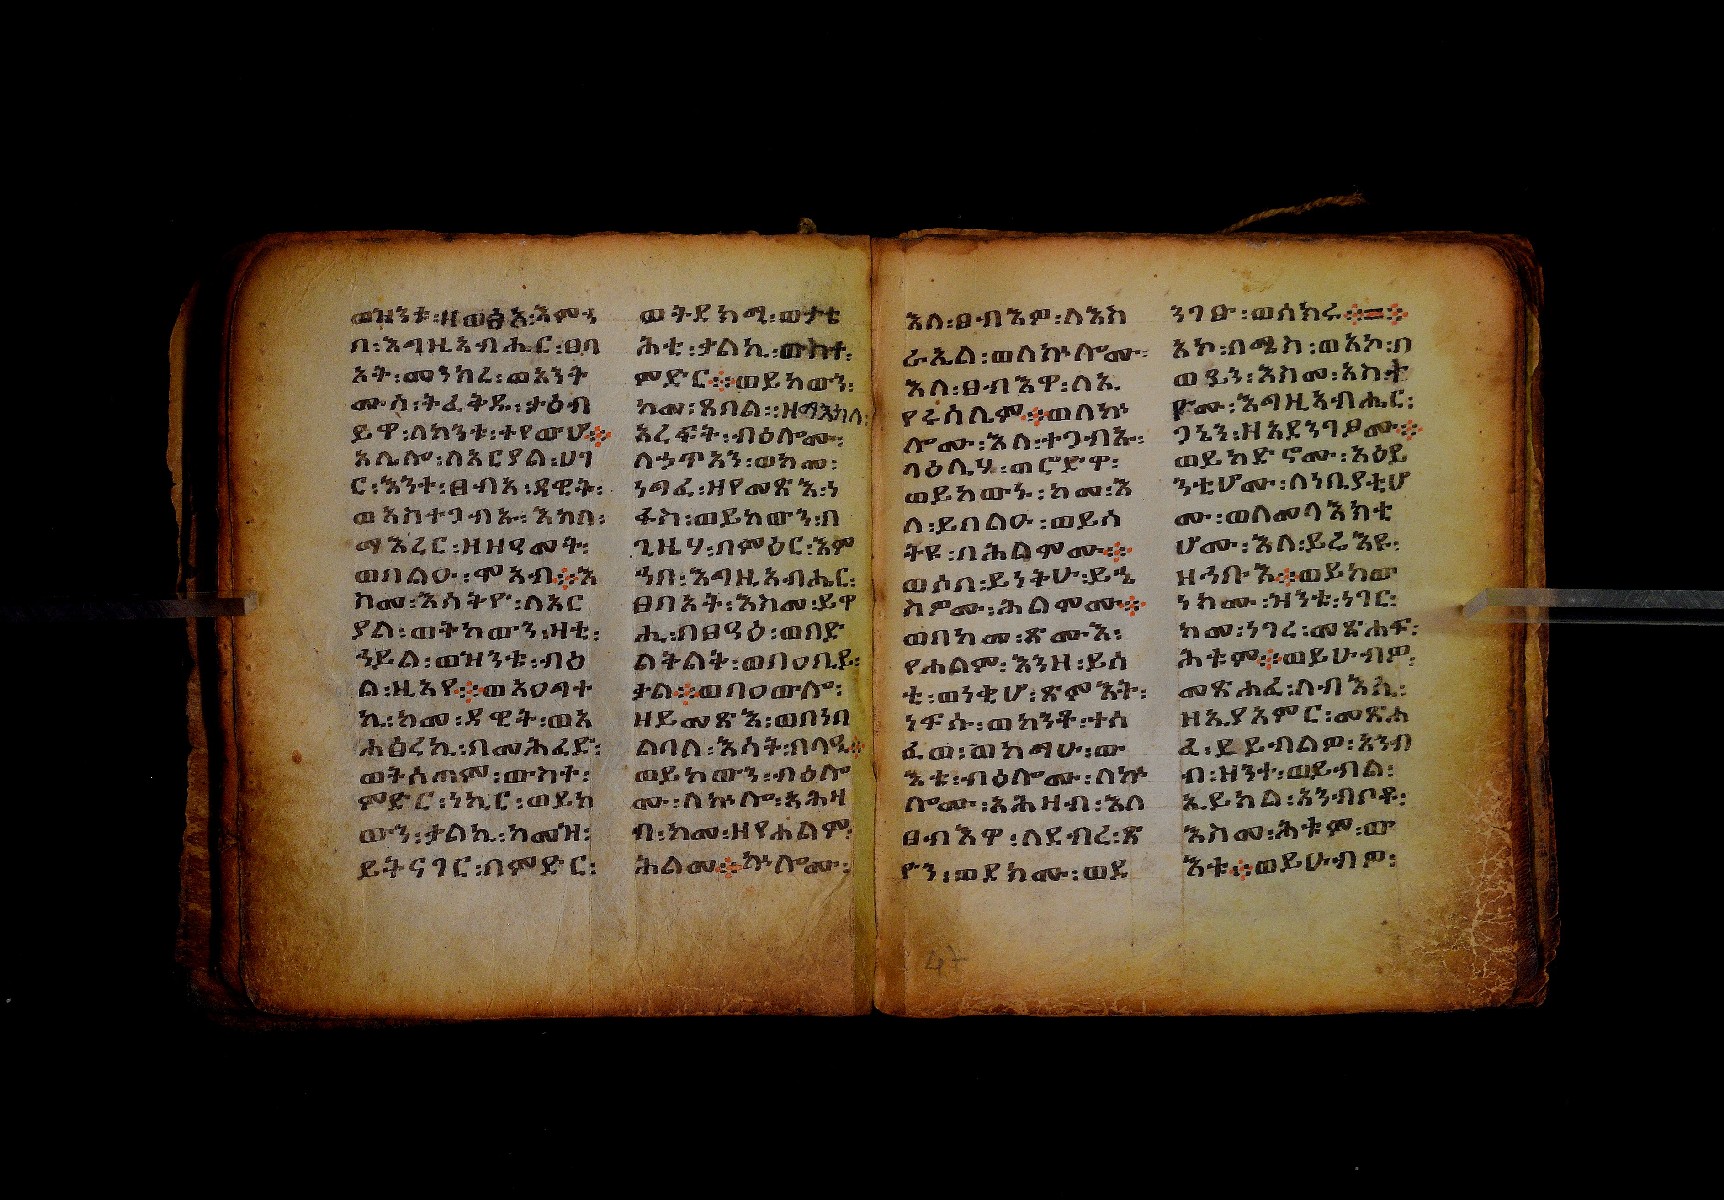 ወዝንቱ፡ዘወፅአ፡እምኀ
በ፡እግዚአብሔር፡ፀባ
አት፡መንክረ፡ወአንት
ሙሰ፡ትፈትዱ፡ታዕብ
ይዋ፡ለከንቱ፡ተየውሆ፨
አሌሎ፡ለአርያል፡ሀገ
ር፡እንተ፡ፀብአ፡ዳዊት፡
ወአስተጋብኡ፡እክለ፡
ማእረር፡ዘዘዓመት፡
ወበልዑ፡ሞአብ፨እ
ስመ፡እስትዮ፡ለአር
ያል፡ወትከውን፡ዛቲ፡
ኀይል፡ወዝንቱ፡ብዕ
ል፡ዚአየ፨ወአዐግተ
ኪ፡ከመ፡ዳዊት፡ወአ
ሐፅረኪ፡በመሕፈድ፡
ወትሰጠም፡ውስተ፡
ምድር፡ነኪር፡ወይከ
ውን፡ቃልኪ፡ከመዝ፡
ይትናገር፡በምድር፡
ወትደክሚ፡ወታቴ
ሕቲ፡ቃልኪ፡ውስተ፡
ምድር፨ወይከውን፡
ከመ፡ጸበል፡ዘማእከለ፡
አረፍት፡ብዕሎሙ፡
ለኃጥአን፡ወከመ፡
ነግፈ፡ዘየመጽእ፡ነ
ፋስ፡ወይከውን፡በ
ጊዜሃ፡በምዕር፡እም
ኀበ፡እግዚአብሔር፡
ፀባአት፡እስመ፡ይዋ
ሒ፡በፀዓዕ፡ወበድ
ልቅልቅ፡ወበዐቢይ፡
ቃል፨ወበዐውሎ፡
ዘይመጽእ፡ወበነበ
ልባለ፡እሳት፡በላዒ፨
ወይከውን፡ብዕሎ
ሙ፡ለኵሎ፡አሕዛ
ብ፡ከመ፡ዘየሐልም፡
ሕልመ፨ኵሎሙ፡
እለ፡ፀብእዎ፡ለእስ
ራኤል፡ወለኵሎሙ፡
እለ፡ፀብእዋ፡ለኢ
የሩሳሌም፨ወለኵ
ሎሙ፡እለ፡ተጋብኡ፡
ላዕሌሃ፡ወሮድዋ፡
ወይከውኑ፡ከመ፡እ
ለ፡ይበልዑ፡ወይሰ
ትዩ፡በሕልሞሙ፨
ወሶበ፡ይነትሁ፡ይኄ
ስዎሙ፡ሕልሞሙ፨
ወበከመ፡ጽሙእ፡
የሐልም፡እንዘ፡ይሰ
ቲ፡ወነቂሆ፡ጽምእት፡
ነፍሱ፡ወከንቶ፡ተሰ
ፈወ፡ወከማሁ፡ው
እቱ፡ብዕሎሙ፡ለኵ
ሎሙ፡አሕዛብ፡እለ
ፀብእዋ፡ለደብረ፡ጽ
ዮን፡ወደክሙ፡ወደ
ንገፁ፡ወሰክሩ፨=፨
አኮ፡በሜስ፡ወአኮ፡በ
ወይን፡እስመ፡አስተ
ዮሙ፡እግዚአብሔር፡
ጋኔን፡ዘአደንገፆሙ፨
ወይከድኖሙ፡አዕይ
ንቲሆሙ፡ለነቢያቲሆ
ሙ፡ወለመላእክቲ
ሆሙ፡እለ፡ይሬእዩ፡
ዘኅቡእ፨ወይከው
ነክሙ፡ዝንቱ፡ነገር፡
ከመ፡ነገረ፡መጽሐፍ፡
ሕቱም፨ወይሁብዎ፡
መጽሐፈ፡ለብእሲ፡
ዘኢያአምር፡መጽሐ
ፈ፡ይይብልዎ፡አንብ
ብ፡ዝንተ፡ወይብል፡
ኢይክል፡አንብቦቶ፡
እስመ፡ሕቱም፡ው
እቱ፨ወይሁብዎ፡
47